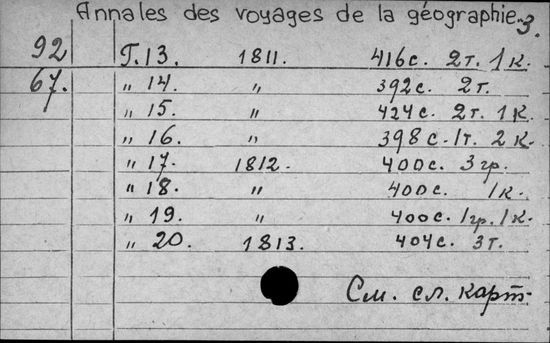 Annales des voyages de la géographie. 3.
92 Т. 13. 1811. 416 с. 2 т. 1 к.
67. " 14. " 392 с. 2 т.
" 15. " 424 с. 2 т. 1 к.
" 16. " 398 с. 1 т. 2 к.
" 17. 1812. 400 с. 3 гр.
" 18. " 400 с. 1 к.
" 19. " 400 с. 1 гр. 1 к.
" 20. 1813. 404 с. 3 т.
См. сл. карт.